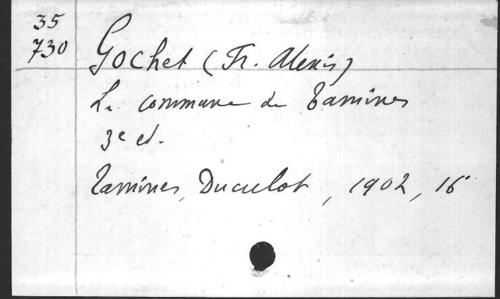 35
730
Gochet (Fr. Alexis)
La commune de Tamines
3e ed.
Tamines, Duculot, 1902, 16°